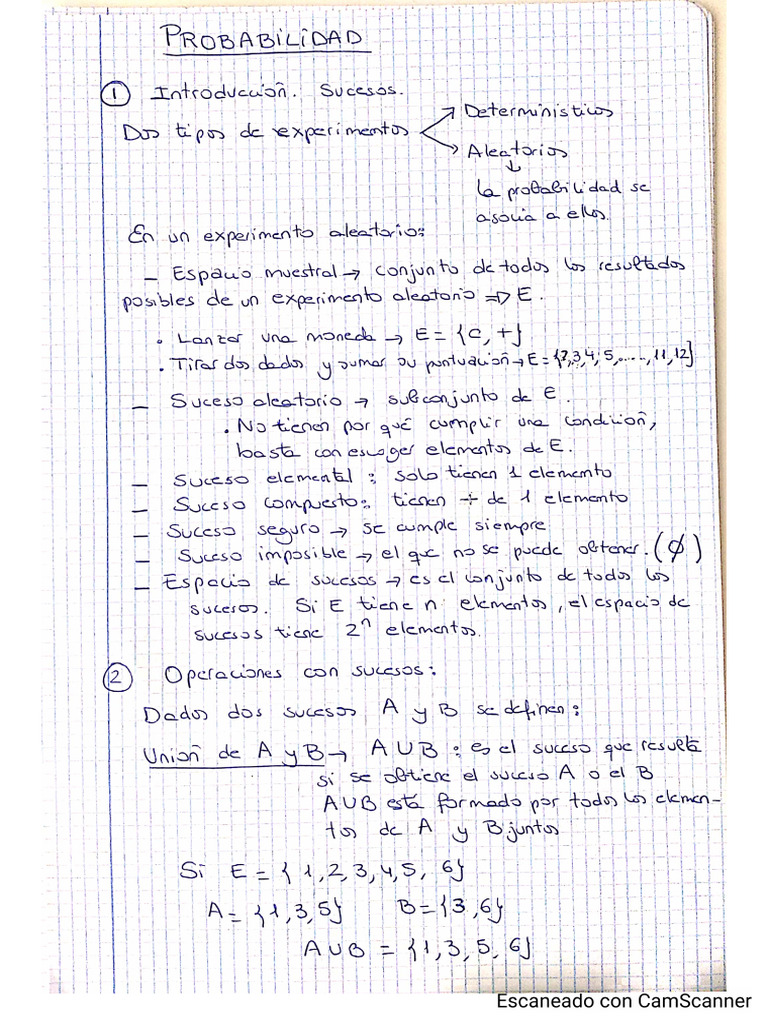 PROBABILIDAD
① Introducción. Sucesos.
Dos tipos de experimentos
→ Determinísticos
→ Aleatorios
↓
la probabilidad se
asocia a ellos.
En un experimento aleatorio:
- Espacio muestral → conjunto de todos los resultados
posibles de un experimento aleatorio => E.
· Lanzar una moneda → E = {C, +}
· Tirar dos dados y sumar su puntuación → E = {2,3,4,5,.....,11,12}
- Suceso aleatorio → subconjunto de E.
· No tienen por qué cumplir una condición,
basta con escoger elementos de E.
- Suceso elemental: solo tienen 1 elemento
- Suceso compuesto: tienen + de 1 elemento
- Suceso seguro → se cumple siempre
- Suceso imposible → el que no se puede obtener. (∅)
- Espacio de sucesos → es el conjunto de todos los
sucesos. Si E tiene n elementos, el espacio de
sucesos tiene 2ⁿ elementos.
② Operaciones con sucesos:
Dados dos sucesos A y B se definen:
Unión de A y B → A ∪ B : es el suceso que resulta
si se obtiene el suceso A o el B
A∪B está formado por todos los elemen-
tos de A y B juntos
Si E = {1,2,3,4,5,6}
A = {1,3,5} B = {3,6}
A∪B = {1,3,5,6}
Escaneado con CamScanner